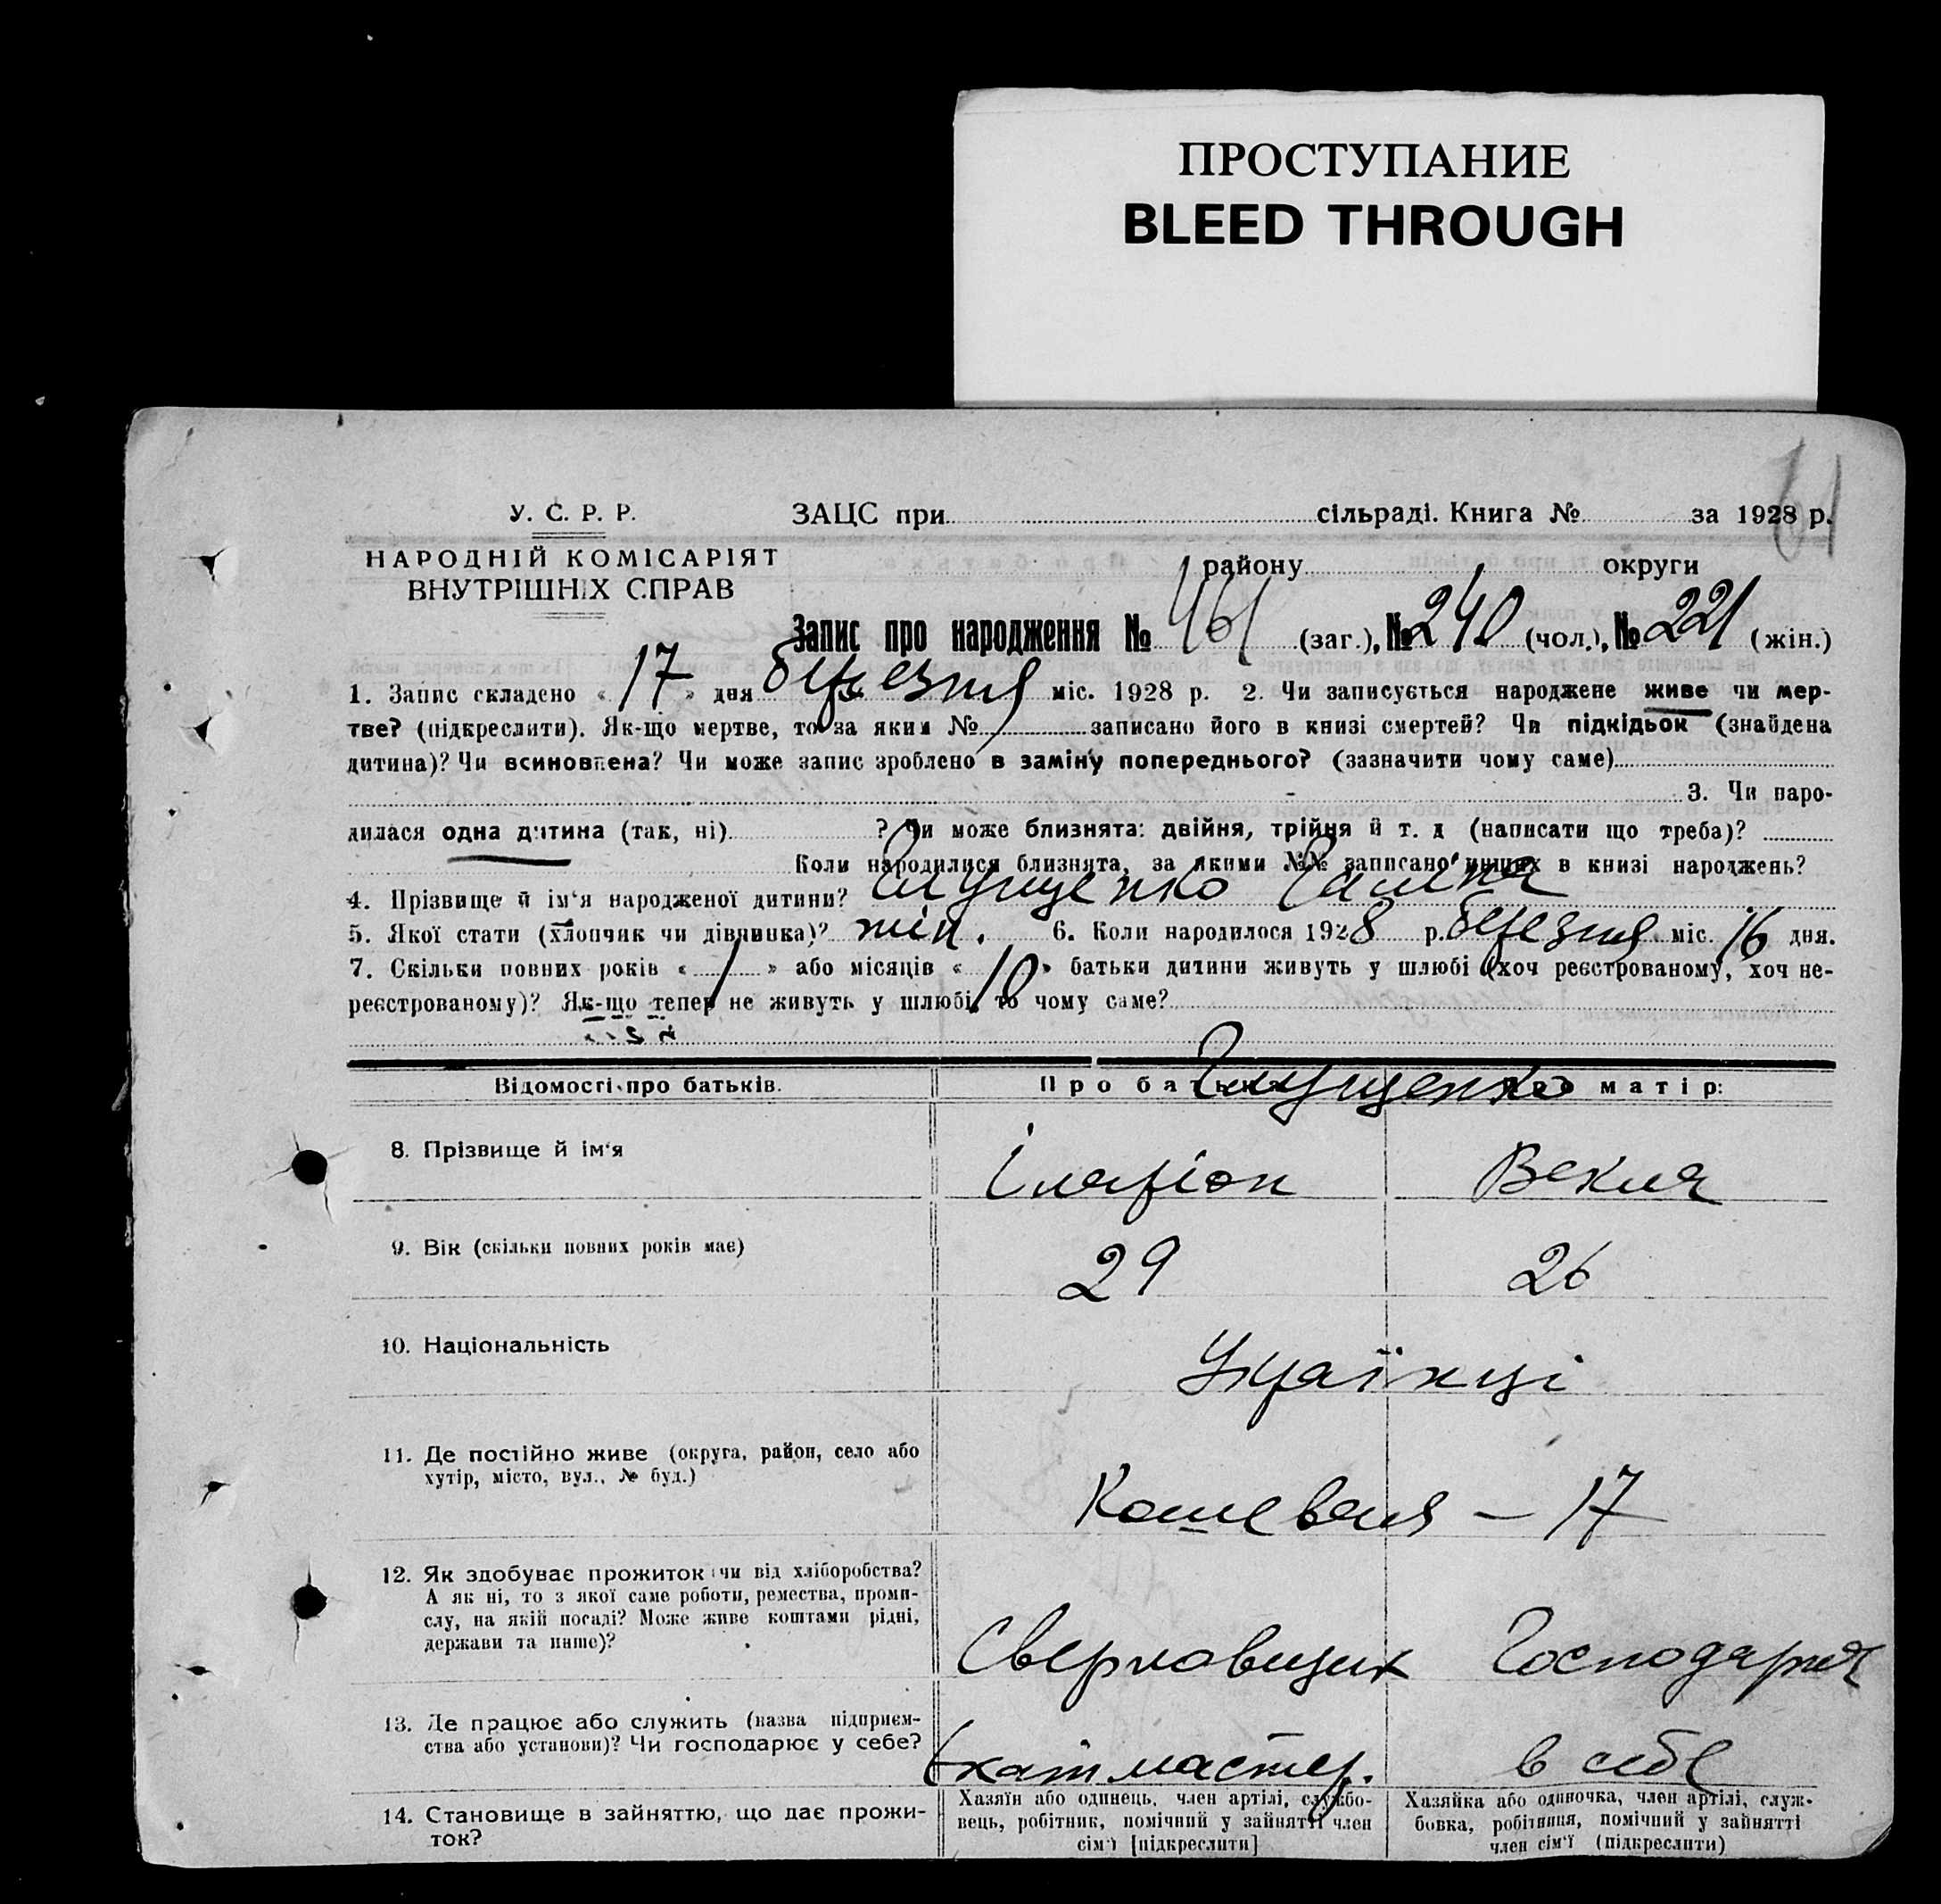 ПРОСТУПАНИЕ
BLEED THROUGH
61
У. С. Р. Р.
ЗАЦС при сільраді. Книга № за 1928 р.
НАРОДНІЙ КОМІСАРІЯТ
ВНУТРІШНІХ СПРАВ
району округи
Запис про народження № 461 (заг.), № 240 (чол.), № 221 (жін.)
1. Запис складено « 17 » дня березня міс. 1928 р. 2. Чи записується народжене живе чи мер-
тве? (підкреслити). Як-що мертве, то за яким № записано його в книзі смертей? Чи підкідьок (знайдена
дитина)? Чи всиновлена? Чи може запис зроблено в заміну попереднього? (зазначити чому саме)
3. Чи наро-
дилася одна дитина (так, ні) ? Чи може близнята: двійня, трійня й т. д (написати що треба)?
Коли народилися близнята, за якими №№ записано инших в книзі народжень?
4. Прізвище й ім‘я народженої дитини? Глущенко Галина
5. Якої стати (хлопчик чи дівчинка)? жін. 6. Коли народилося 1928 р. березня міс. 16 дня.
7. Скільки повних років « / » або місяців « 10 » батьки дитини живуть у шлюбі (хоч реєстрованому, хоч не-
реєстрованому)? Як-що тепер не живуть у шлюбі, то чому саме?
Відомості про батьків. Про батька Про матір:
Глущенко
8. Прізвище й ім‘я Іларіон Векля
9. Вік (скільки повних років має) 29 26
10. Національність Українці
11. Де постійно живе (округа, район, село або
хутір, місто, вул., № буд.)
Кошевая – 17
12. Як здобуває прожиток чи від хліборобства?
А як ні, то з якої саме роботи, ремества, проми-
слу, на якій посаді? Може живе коштами рідні,
держави та инше)?
Сверловщик Господарня
13. Де працює або служить (назва підприєм-
ства або установи)? Чи господарює у себе?
мастер. в себе
14. Становище в зайняттю, що дає прожи-
ток?
Хазяїн або одинець, член артілі, службо-
вець, робітник, помічний у зайнятті член
сім‘ї [підкреслити]
Хазяйка або одиночка, член артілі, служ-
бовка, робітниця, помічний у зайнятті
член сім‘ї (підкреслити)